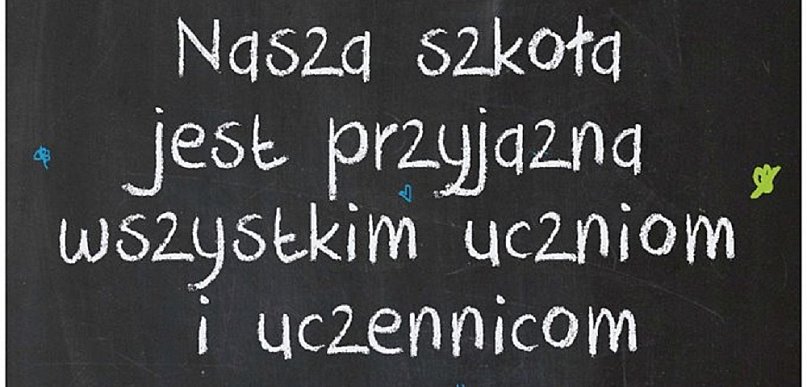 Nasza szkoła
jest przyjazna
wszystkim uczniom
i uczennicom